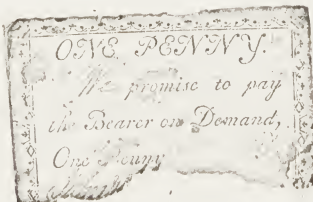 ONE PENNY.
We promise to pay
the Bearer on Demand,
One Penny